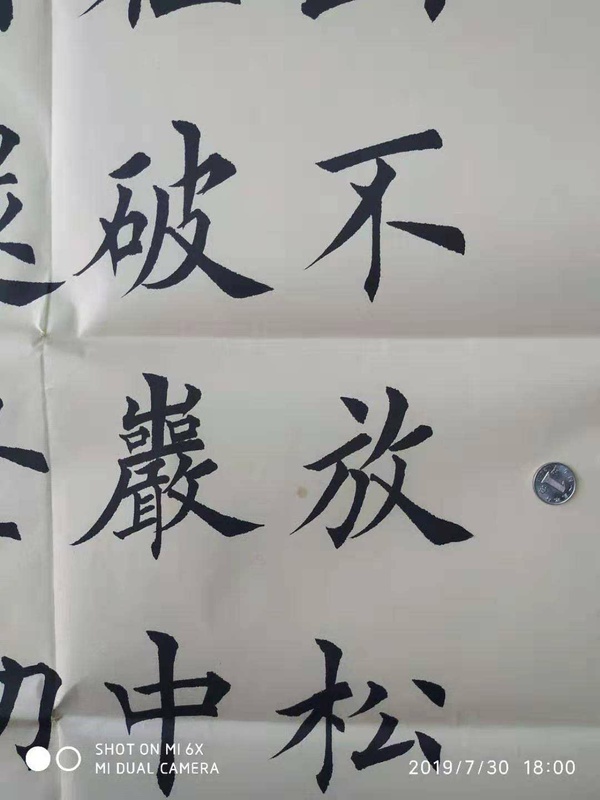 不放松
破巖中
SHOT ON MI 6X
MI DUAL CAMERA
2019/7/30 18:00